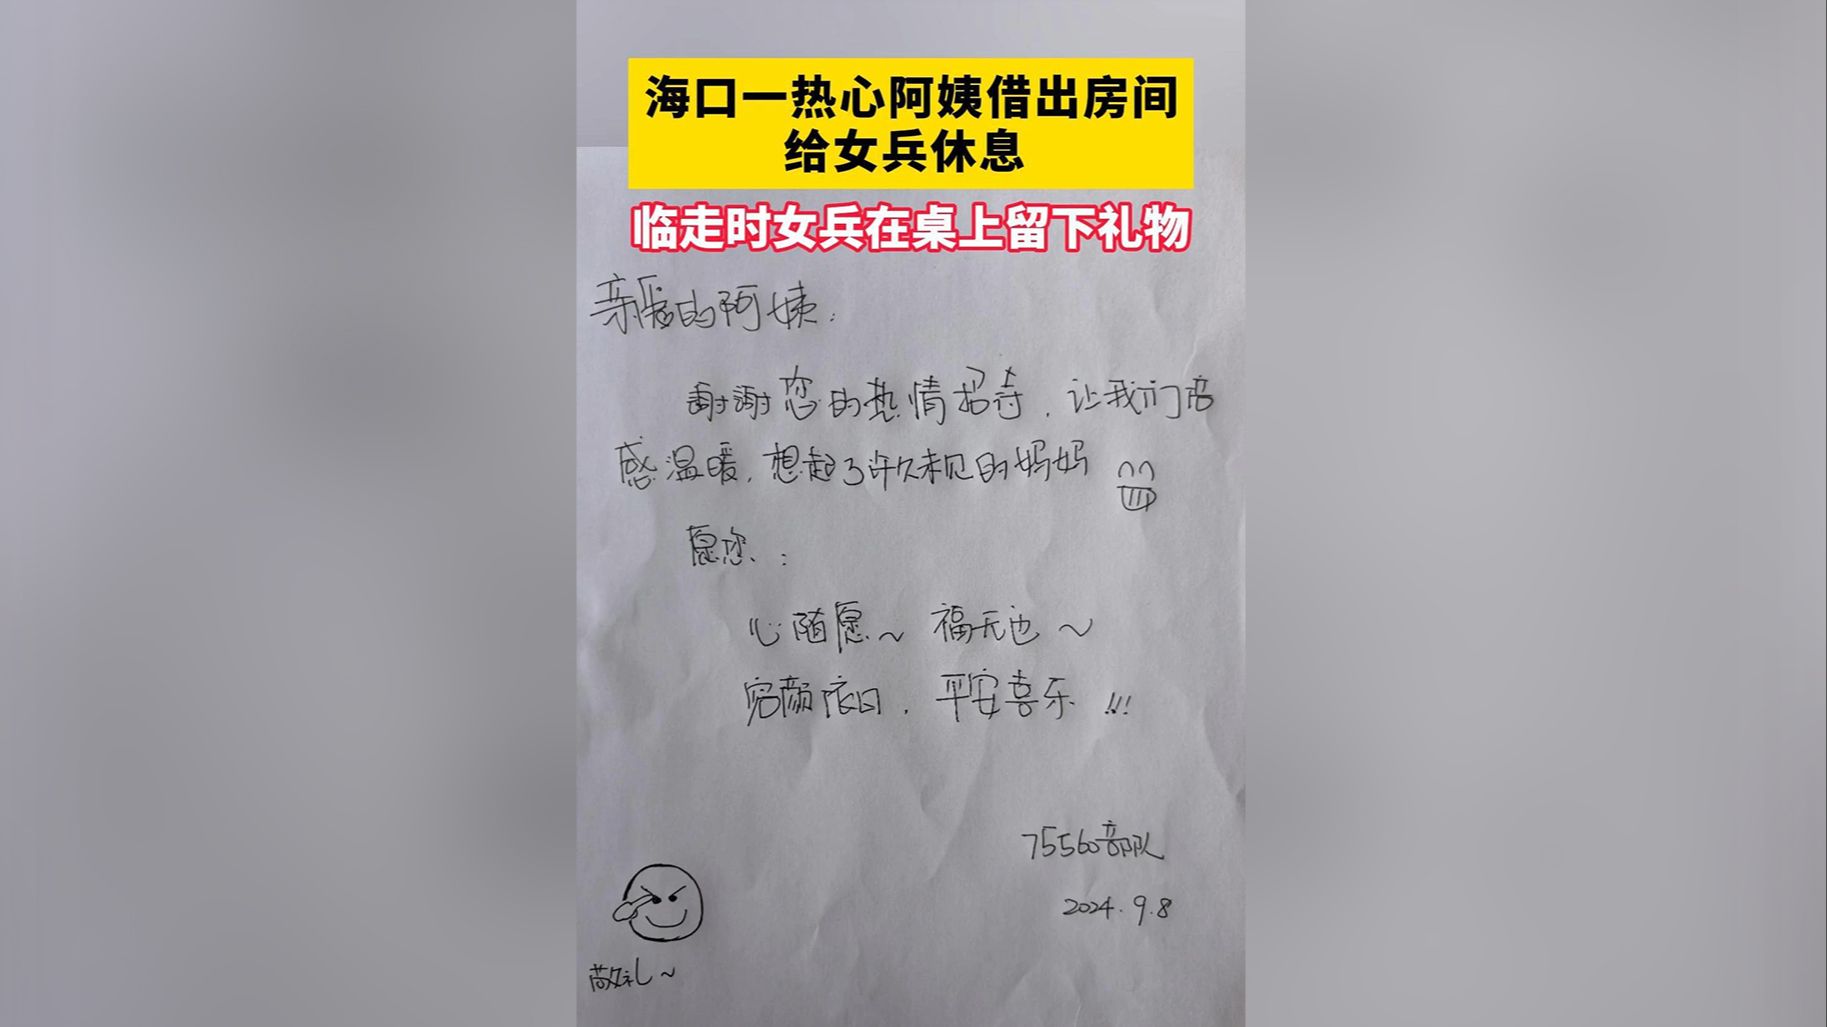 海口一热心阿姨借出房间
给女兵休息
临走时女兵在桌上留下礼物
亲爱的阿姨:
谢谢您的热情招待,让我们倍
感温暖,想起了许久未见的妈妈
愿您:
心随愿~ 福无边~
容颜依旧,平安喜乐!!!
75560部队
2024.9.8
敬礼~